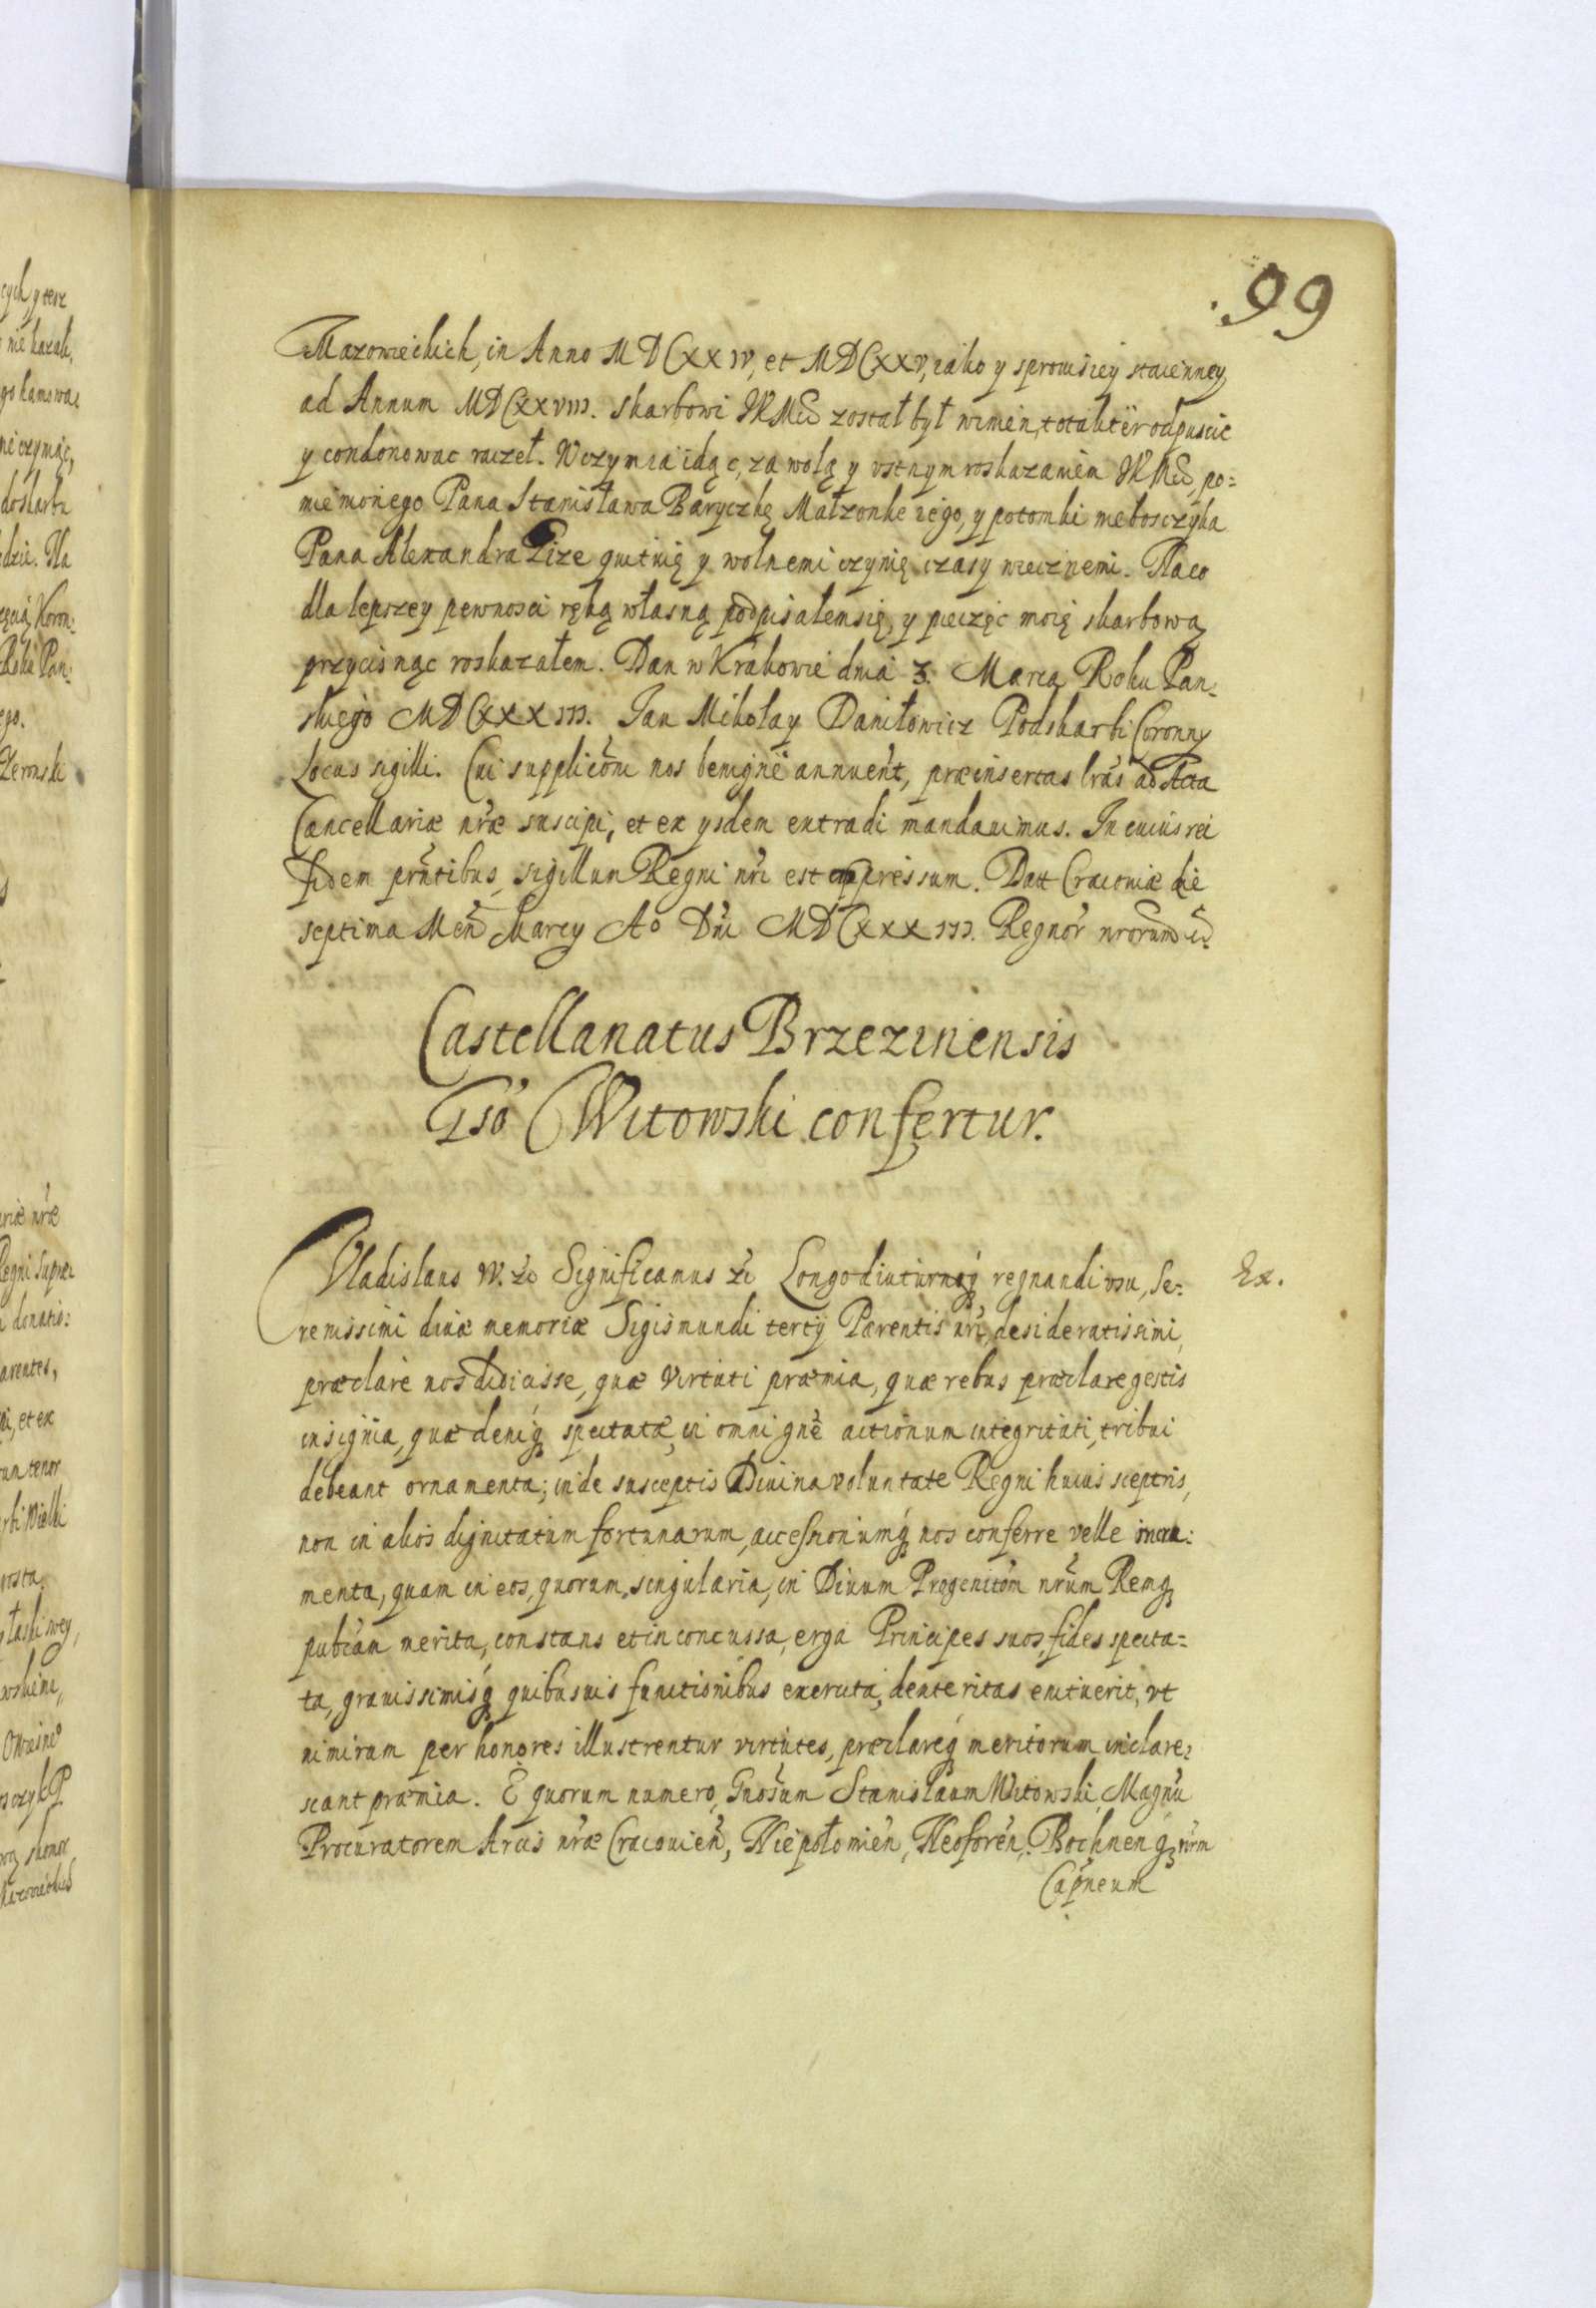 99
Mazowieckich, in Anno MDCXXIV, et MDCXXV, iako y sprowisiey stacienney
ad Annum MDCXXVIII. skarbowi JKMci został był winien, totaliter odpuscic
y condonowac raczeł. W czym ia idąc, za wolą y vstnym roskazaniem JKMci, po=
mienionego Pana Stanisława Baryczkę Małzonke iego, y potomki nieboszczyka
Pana Alexandra Gize quituię y wolnemi czynię czasy wiecznemi. Na co
dla lepszey pewnosci ręką własną podpisałem się, y pieczęc moię skarbową
przycisnąc roskazałem. Dan w Krakowie dnia 3. Marca Roku Pan=
skiego MDCXXXIII. Jan Mikołay Daniłowicz Podskarbi Coronny
Locus sigilli. Cui supplicõni nos benigne annuent, præinsertas lrãs ad Acta
Cancellariæ nræ suscipi, et ex ysdem extradi mandauimus. In cuius rei
fidem prntibus, sigillum Regni nri est appressum. Datt Cracouiæ die
septima Men Marcy Ao Dni MDCXXXIII. Regnor nrorum &
Castellanatus Brzezinensis
Gso Witowski confertur.
Ex.
Vladislaus IV. &c Significamus &c Longo diuturnoq regnandi vsu, Se=
renissimi diuæ memoriæ Sigismundi tertij Parentis nri, desideratissimi,
præclarè nos didicisse, quæ virtuti præmia, quæ rebus præclare gestis
insignia, quæ deniq spectatæ, in omni gne actionum integritati, tribui
debeant ornamenta; inde susceptis Diuina voluntate Regni huius sceptris,
non in alios dignitatum fortunarum, accessionumq nos conferre velle incre=
menta, quam in eos, quorum singularia, in Diuum Progenitom nrum Remq
publcam merita, constans et inconcussa, erga Principes suos, fides specta=
ta, grauissimisq quibusuis functionibus exercita, dexteritas enituerit, vt
nimirum per honores illustrentur virtutes, præclareq meritorum inclare=
scant præmia. E quorum numero, Gnosum Stanislaum Witowski, Magnu
Procuratorem Arcis nræ Cracouien, Niepołomien, Neoforen, Bochnen q rum
Capneum